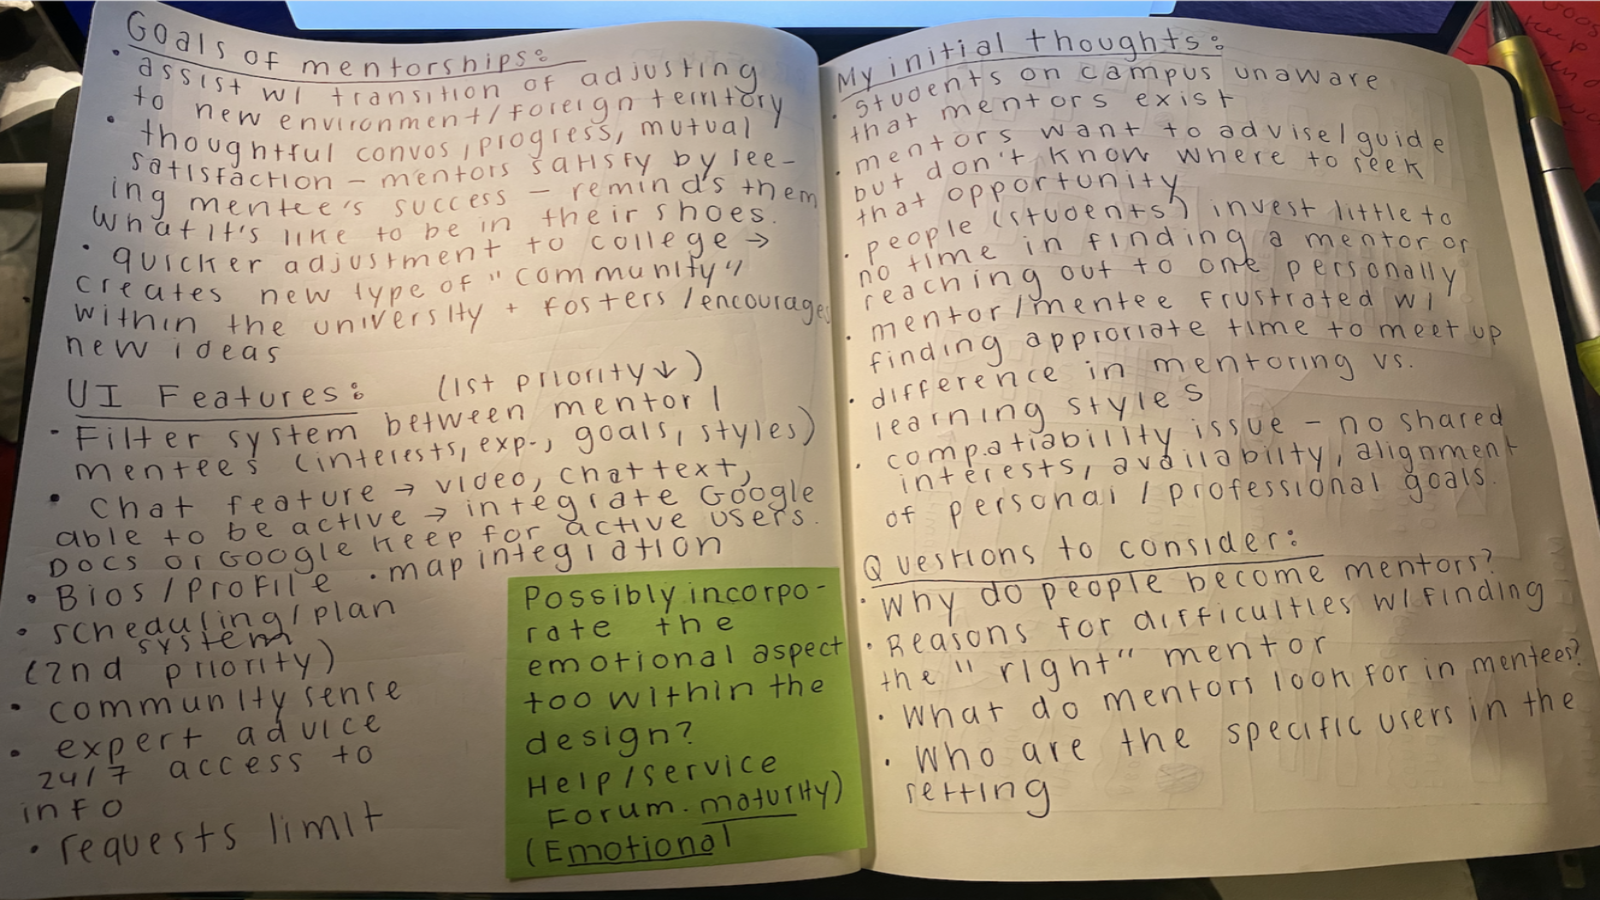 Goals of mentorships:
• assist w/ transition of adjusting
to new environment/foreign territory
• thoughtful convos, progress, mutual
satisfaction – mentors satisfy by see-
ing mentee's success – reminds them
what it's like to be in their shoes.
• quicker adjustment to college →
creates new type of "community"
within the university + fosters/encourages
new ideas
UI Features: (1st priority ↓)
• Filter system between mentor/
mentees (interests, exp., goals, styles)
• Chat feature → video, chat text,
able to be active → integrate Google
Docs or Google Keep for active users.
• Bios/profile • map integration
• scheduling/plan
system
(2nd priority)
• community sense
• expert advice
24/7 access to
info
• requests limit
Possibly incorpo-
rate the
emotional aspect
too within the
design?
Help/service
Forum. maturity)
(Emotional
My initial thoughts:
• students on campus unaware
that mentors exist
• mentors want to advise/guide
but don't know where to seek
that opportunity
• people (students) invest little to
no time in finding a mentor or
reaching out to one personally
• mentor/mentee frustrated w/
finding approriate time to meet up
• difference in mentoring vs.
learning styles
• compatiability issue – no shared
interests, availabilty, alignment
of personal / professional goals.
Questions to consider:
• Why do people become mentors?
• Reasons for difficulties w/ finding
the "right" mentor
• What do mentors look for in mentees?
• Who are the specific users in the
setting